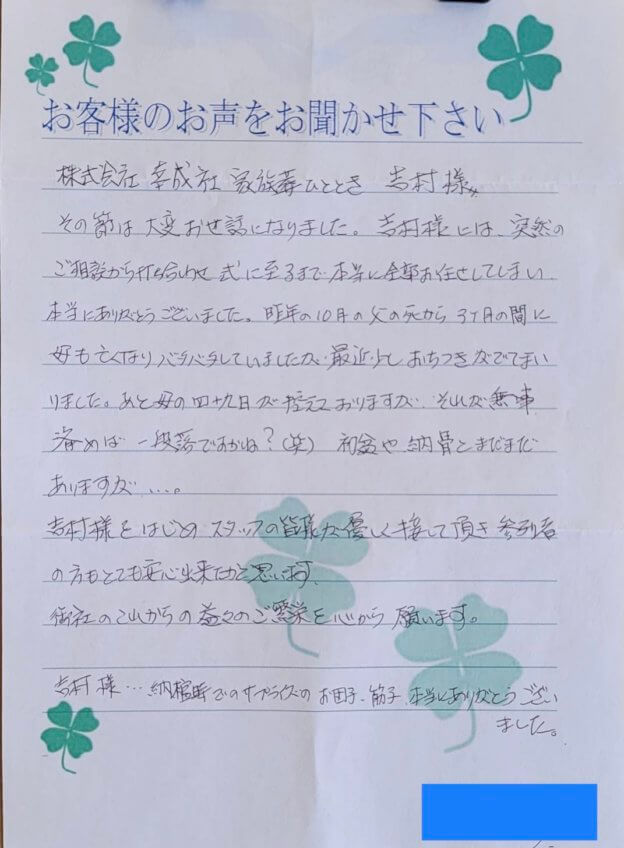 お客様のお声をお聞かせ下さい
株式会社 幸成社 家族葬ひととき 吉村様
その節は大変お世話になりました。吉村様には、突然の
ご相談から打ち合わせ 式に至るまで 本当に全部お任せしてしまい
本当にありがとうございました。昨年の10月の父の死から 3ケ月の間に
母も亡くなり バタバタしていましたが、最近少し おちつきがでてまい
りました。あと母の四十九日が控えておりますが、それが無事
済めば 一段落ですかね?(笑) 初盆や納骨とまだまだ
ありますが....。
吉村様をはじめ スタッフの皆様が優しく接して頂き 参列者
の方もとても安心出来たかと思います。
御社のこれからの益々のご繁栄を心から 願います。
吉村様… 納棺時でのサプライズの お団子、筋子、本当にありがとうござい
ました。